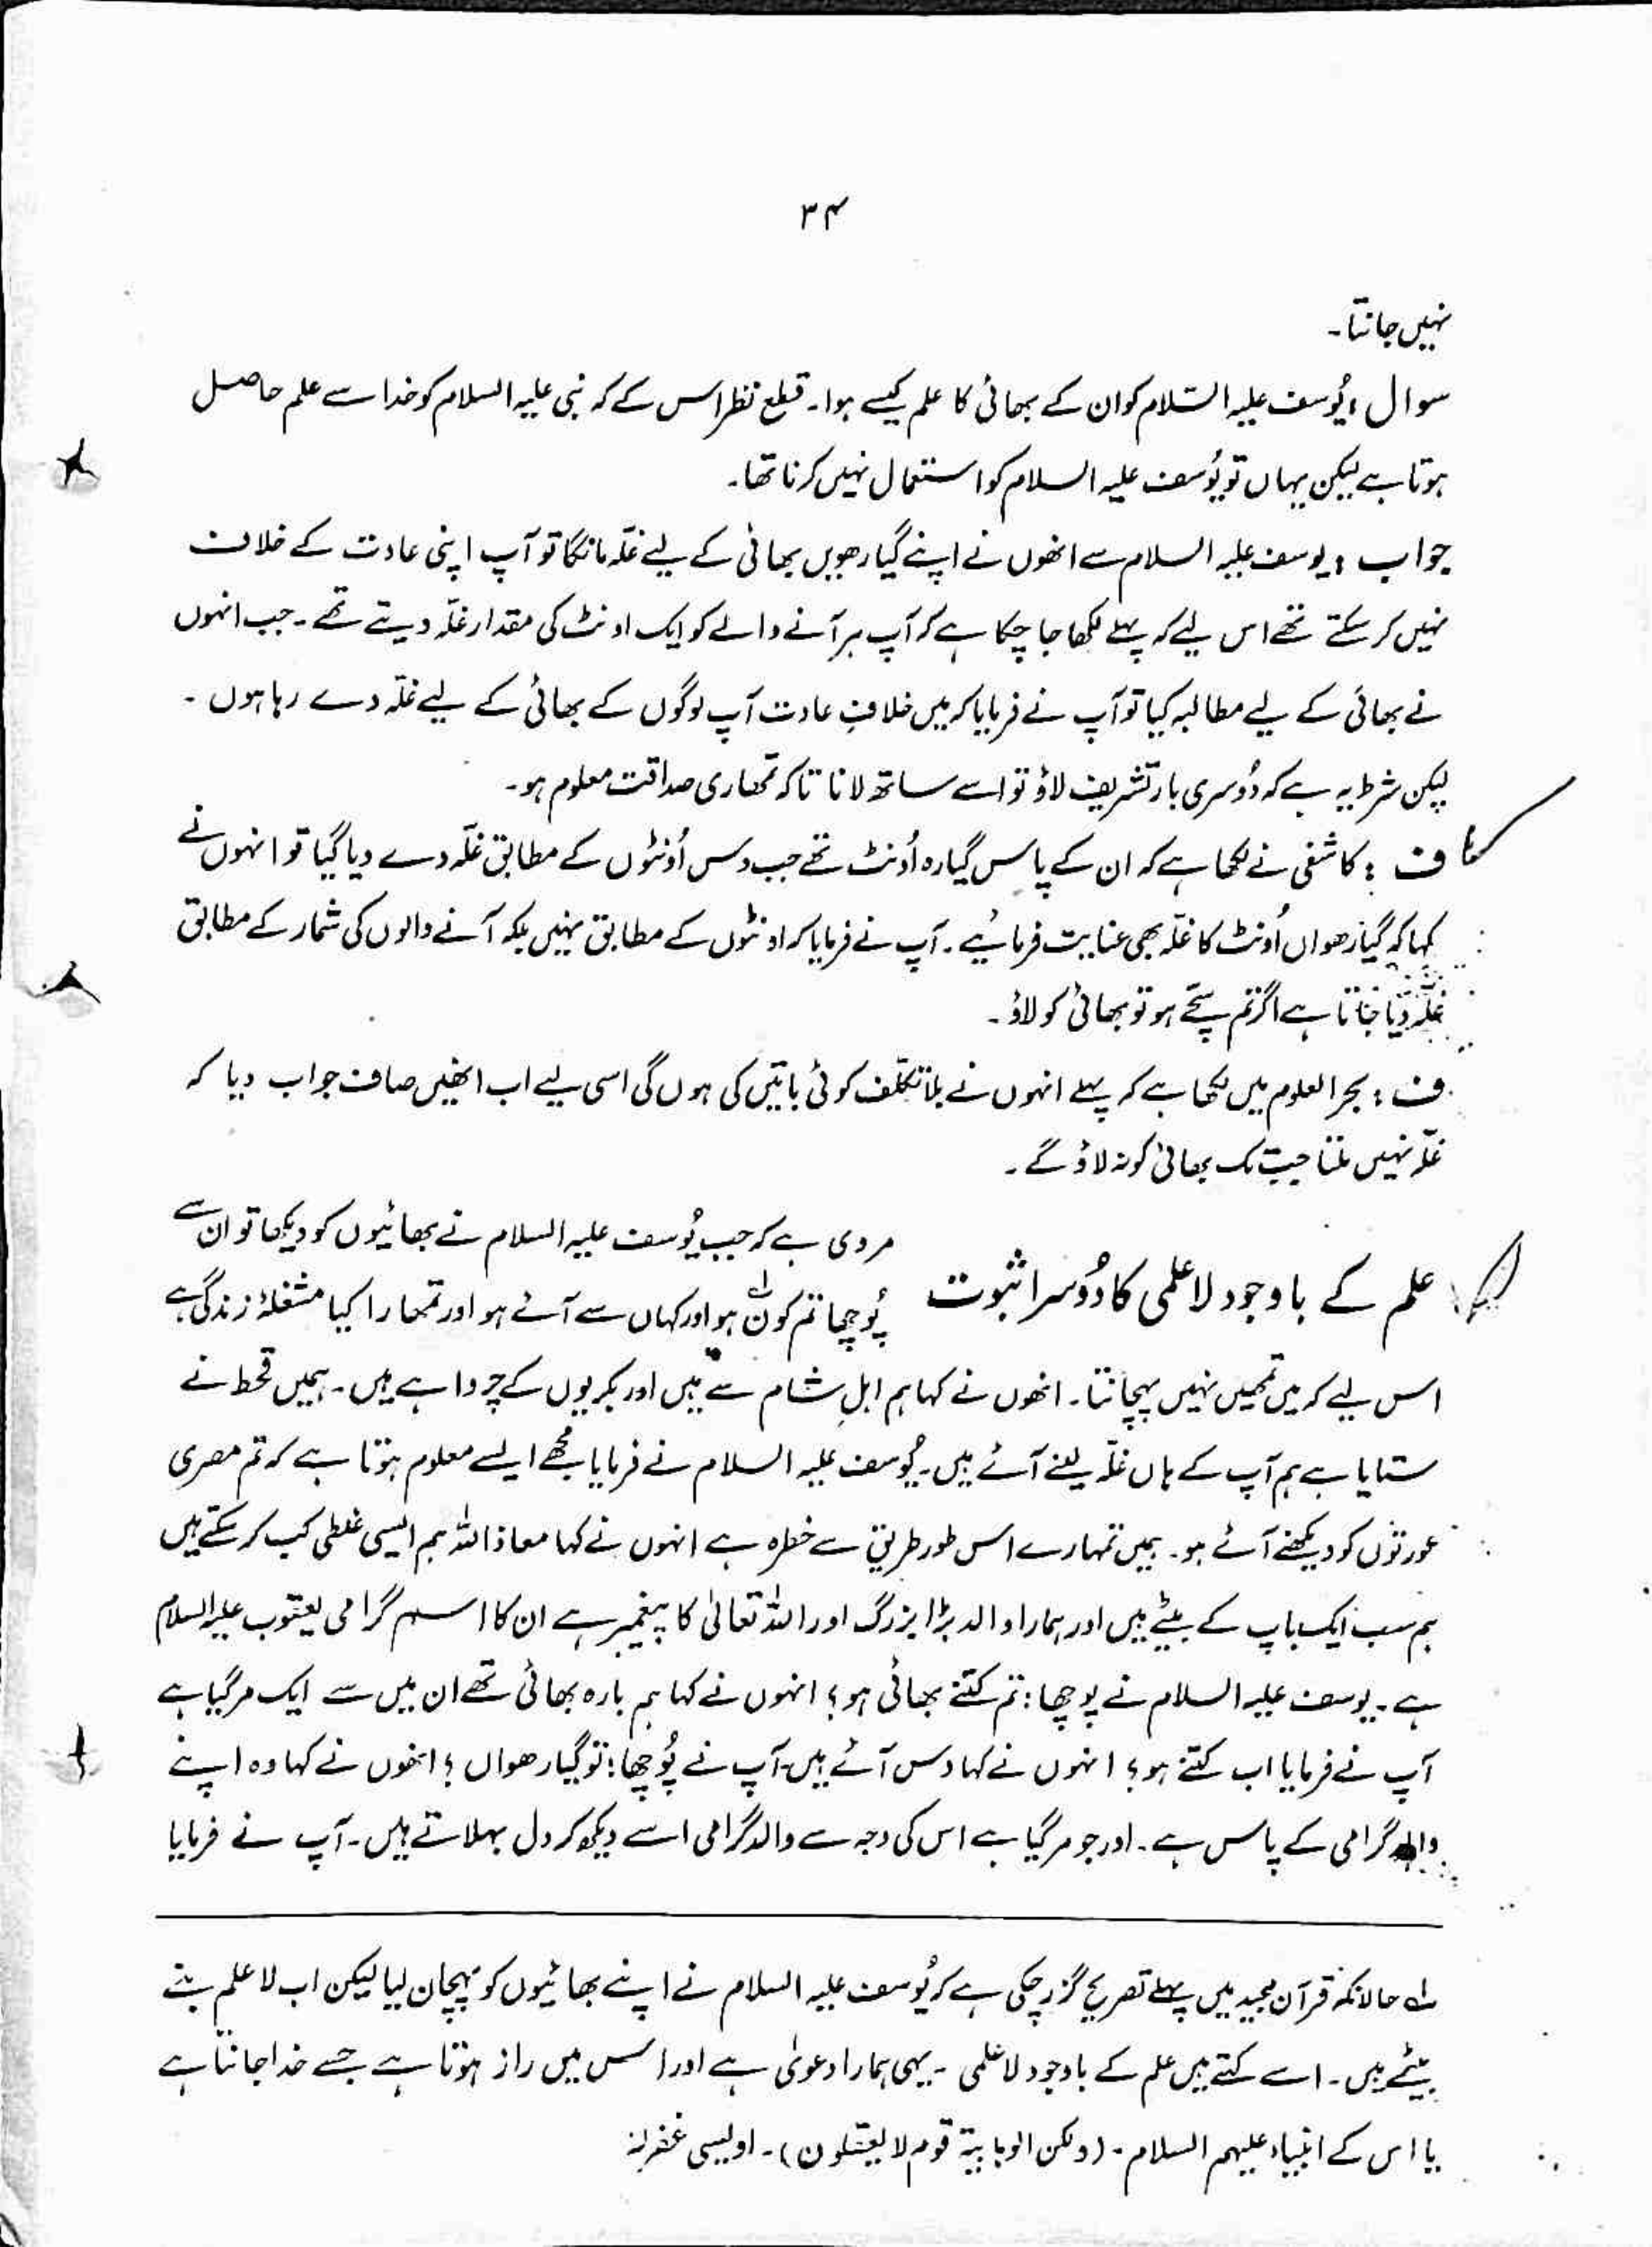 ۳۴
نہیں جانتا۔
سوال: یُوسف علیہ السّلام کو ان کے بھائی کا علم کیسے ہوا۔ قطع نظر اس کے کہ نبی علیہ السلام کو خدا سے علم حاصل
ہوتا ہے لیکن یہاں تو یُوسف علیہ السلام کو استعمال نہیں کرنا تھا۔
جواب: یوسف علیہ السلام سے انھوں نے اپنے گیارھویں بھائی کے لیے غلّہ مانگا تو آپ اپنی عادت کے خلاف
نہیں کر سکتے تھے اس لیے کہ پہلے لکھا جا چکا ہے کہ آپ ہر آنے والے کو ایک اونٹ کی مقدار غلّہ دیتے تھے۔ جب انہوں
نے بھائی کے لیے مطالبہ کیا تو آپ نے فرمایا کہ میں خلافِ عادت آپ لوگوں کے بھائی کے لیے غلّہ دے رہا ہوں۔
لیکن شرط یہ ہے کہ دُوسری بار تشریف لاؤ تو اسے ساتھ لانا تاکہ تمھاری صداقت معلوم ہو۔
ف: کاشفی نے لکھا ہے کہ ان کے پاس گیارہ اُونٹ تھے جب دس اُونٹوں کے مطابق غلّہ دے دیا گیا تو انہوں نے
کہا کہ گیارھواں اُونٹ کا غلّہ بھی عنایت فرمائیے۔ آپ نے فرمایا کہ اونٹوں کے مطابق نہیں بلکہ آنے والوں کی شمار کے مطابق
غلّہ دیا جاتا ہے اگر تم سچّے ہو تو بھائی کو لاؤ۔
ف: بحر العلوم میں لکھا ہے کہ پہلے انہوں نے بلا تکلّف کوئی باتیں کی ہوں گی اسی لیے اب انھیں صاف جواب دیا کہ
غلّہ نہیں ملتا جب تک بھائی کو نہ لاؤ گے۔
علم کے باوجود لاعلمی کا دُوسرا ثبوت
مروی ہے کہ جب یُوسف علیہ السلام نے بھائیوں کو دیکھا تو ان سے
پُوچھا تم کون ہو اور کہاں سے آئے ہو اور تمھارا کیا مشغلۂ زندگی ہے
اس لیے کہ میں تمھیں نہیں پہچانتا۔ انھوں نے کہا ہم اہلِ شام سے ہیں اور بکریوں کے چرواہے ہیں۔ ہمیں قحط نے
ستایا ہے ہم آپ کے ہاں غلّہ لینے آئے ہیں۔ یُوسف علیہ السلام نے فرمایا مجھے ایسے معلوم ہوتا ہے کہ تم مصری
عورتوں کو دیکھنے آئے ہو۔ ہمیں تمہارے اس طور طریق سے خطرہ ہے انہوں نے کہا معاذ اللہ ہم ایسی غلطی کب کر سکتے ہیں
ہم سب ایک باپ کے بیٹے ہیں اور ہمارا والد بڑا بزرگ اور اللہ تعالیٰ کا پیغمبر ہے ان کا اسم گرامی یعقوب علیہ السلام
ہے۔ یوسف علیہ السلام نے پوچھا: تم کتنے بھائی ہو؟ انہوں نے کہا ہم بارہ بھائی تھے ان میں سے ایک مر گیا ہے
آپ نے فرمایا اب کتنے ہو؟ انہوں نے کہا دس آئے ہیں۔ آپ نے پُوچھا: تو گیارھواں؟ انھوں نے کہا وہ اپنے
والد گرامی کے پاس ہے۔ اور جو مر گیا ہے اس کی وجہ سے والد گرامی اسے دیکھ کر دل بہلاتے ہیں۔ آپ نے فرمایا
لہ حالانکہ قرآن مجید میں پہلے تصریح گزر چکی ہے کہ یُوسف علیہ السلام نے اپنے بھائیوں کو پہچان لیا لیکن اب لاعلم بنے
بیٹھے ہیں۔ اسے کہتے ہیں علم کے باوجود لاعلمی۔ یہی ہمارا دعویٰ ہے اور اس میں راز ہوتا ہے جسے خدا جانتا ہے
یا اس کے انبیاء علیہم السلام۔ (ولکن الوہابیۃ قوم لا یعقلون)۔ اویسی غفرلہٗ